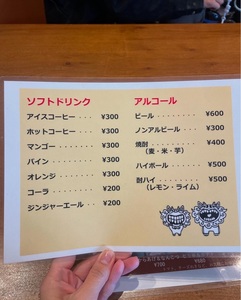 ソフトドリンク
アイスコーヒー・・・¥300
ホットコーヒー・・・¥300
マンゴー・・・・・・¥300
パイン・・・・・・・¥300
オレンジ・・・・・・¥300
コーラ・・・・・・・¥200
ジンジャーエール・・¥200
アルコール
ビール・・・・・・・¥600
ノンアルビール・・・¥300
焼酎・・・・・・・・¥400
(麦・米・芋)
ハイボール・・・・・¥500
酎ハイ・・・・・・・¥500
(レモン・ライム)
¥700
¥500